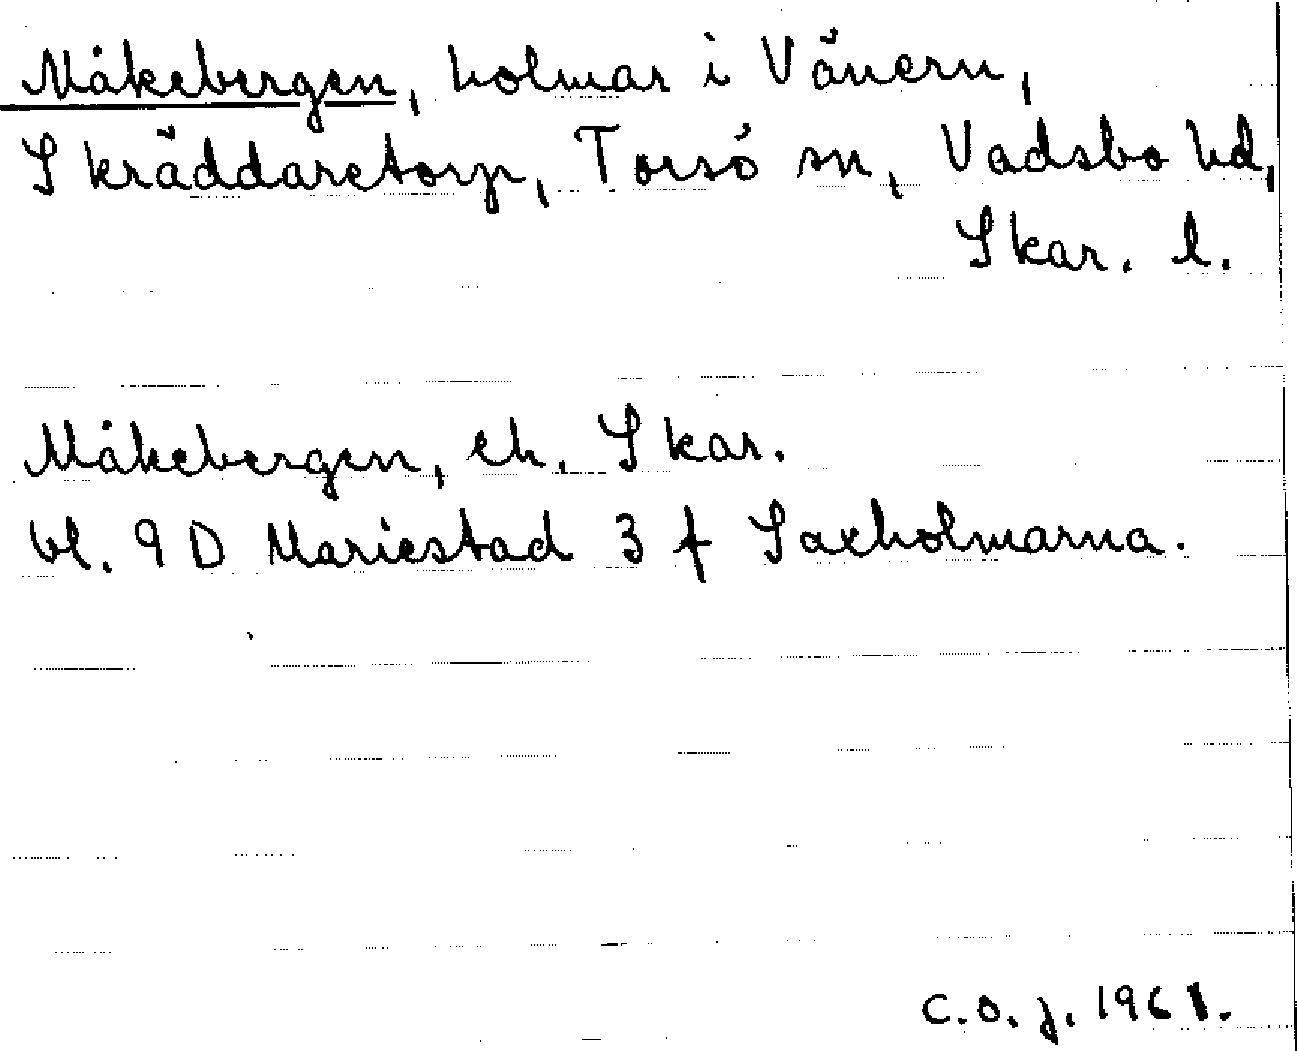 Måkebergen, holmar i Vänern,
Skräddaretorp, Torsö sn, Vadsbo hd,
Skar. l.
Måkebergen, ek. Skar.
bl. 9 D Mariestad 3 f Saxholmarna.
C.O.J. 1961.